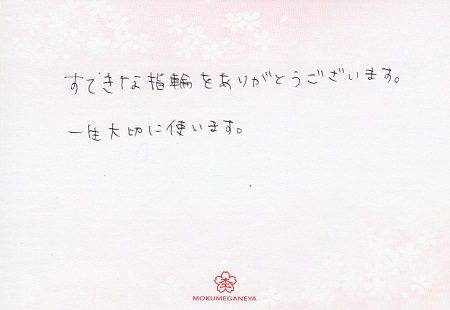 すてきな指輪をありがとうございます。
一生大切に使います。
MOKUMEGANEYA